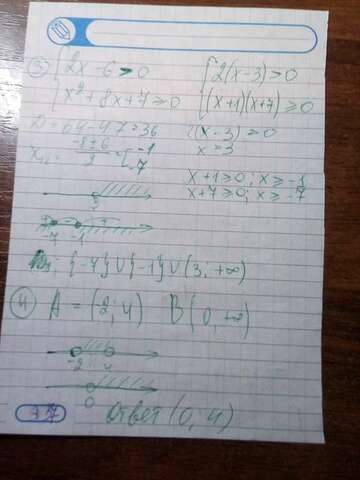 ③ { 2x - 6 > 0
{ x² + 8x + 7 ≥ 0
{ 2(x-3) > 0
{ (x+1)(x+7) ≥ 0
D = 64 - 4·7 = 36
x₁,₂ = (-8±6)/2 = [ -1 -7
(x-3) = 0
x = 3
x+1 ≥ 0; x ≥ -1
x+7 ≥ 0; x ≥ -7
-7 -1
{-7} ∪ {-1} ∪ (3; +∞)
④ A = (2; 4) B (0, +∞)
-2 4
0
Ответ (0, 4)
37